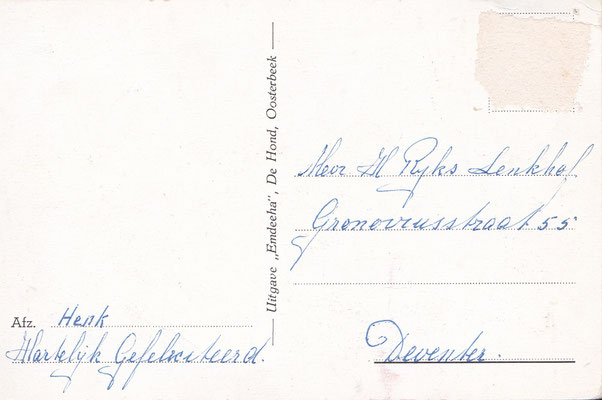 Afz. Henk
Hartelijk Gefeliciteerd.
Uitgave „Emdeeha”, De Hond, Oosterbeek
Mevr H Ryks Lenkhof
Gronoviusstraat 55
Deventer.